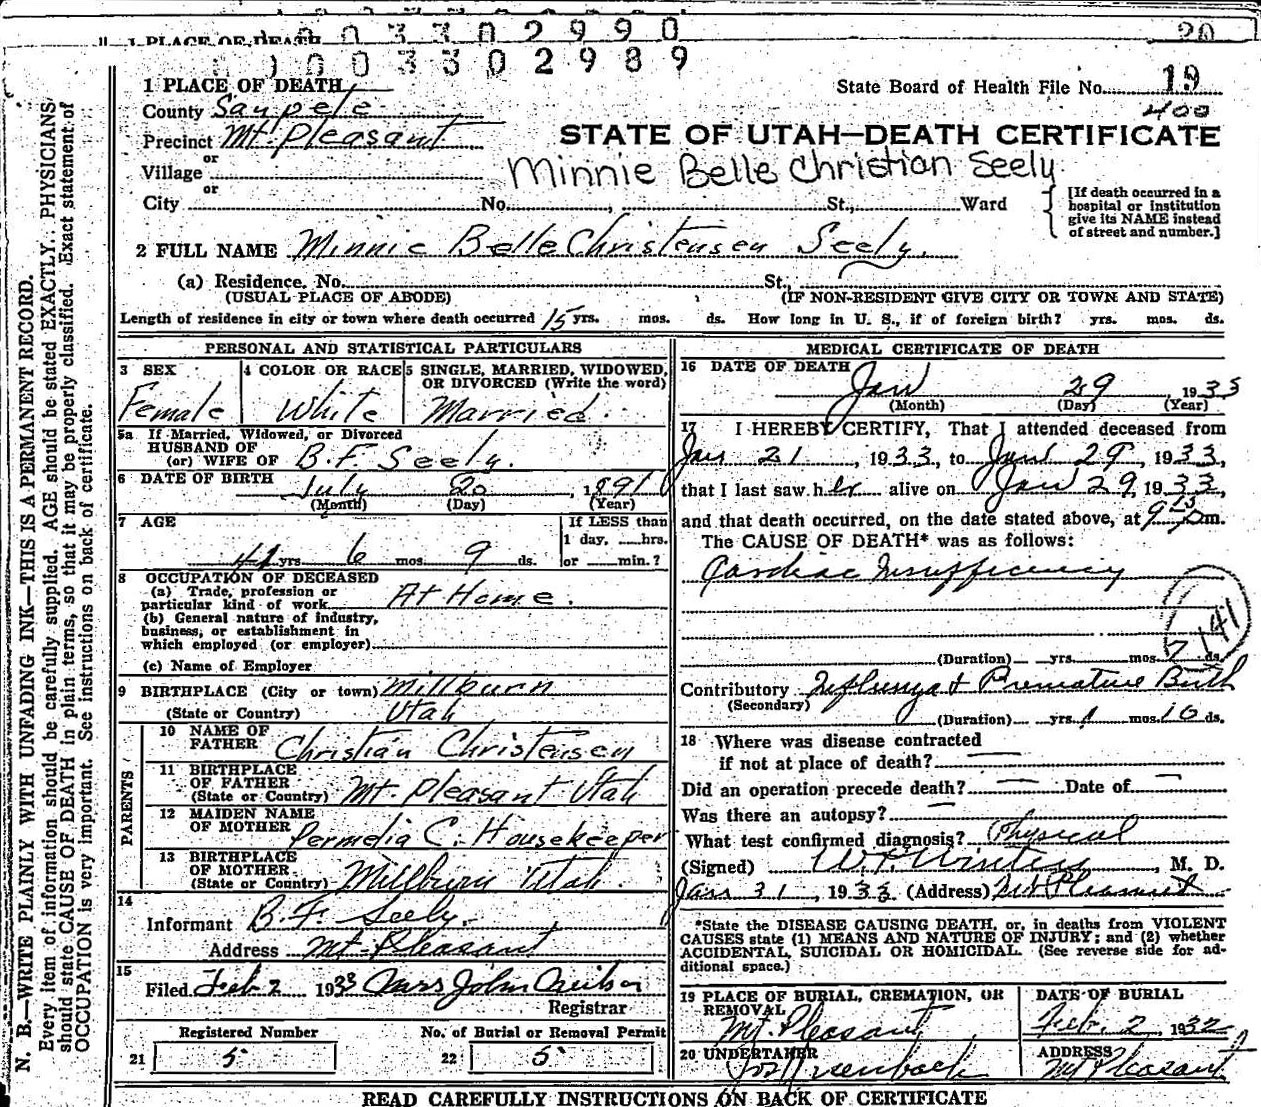 1 PLACE OF DEATH 0 0 3 3 0 2 9 9 0 20
0 0 3 3 0 2 9 8 9
1 PLACE OF DEATH
State Board of Health File No. 19
400
County Sanpete
Precinct Mt. Pleasant
STATE OF UTAH—DEATH CERTIFICATE
or
Village
Minnie Belle Christian Seely
or
City No. , St., Ward
[If death occurred in a
hospital or institution
give its NAME instead
of street and number.]
2 FULL NAME Minnie Belle Christensen Seely.
(a) Residence. No. St.,
(USUAL PLACE OF ABODE) (IF NON-RESIDENT GIVE CITY OR TOWN AND STATE)
Length of residence in city or town where death occurred 15 yrs. mos. ds. How long in U. S., if of foreign birth? yrs. mos. ds.
PERSONAL AND STATISTICAL PARTICULARS
3 SEX
Female
4 COLOR OR RACE
White
5 SINGLE, MARRIED, WIDOWED,
OR DIVORCED (Write the word)
Married.
5a If Married, Widowed, or Divorced
HUSBAND OF
(or) WIFE OF B.F. Seely.
6 DATE OF BIRTH July 20, 1891
(Month) (Day) (Year)
7 AGE
41 yrs 6 mos. 9 ds.
If LESS than
1 day, hrs.
or min.?
8 OCCUPATION OF DECEASED
(a) Trade, profession or
particular kind of work At Home.
(b) General nature of industry,
business, or establishment in
which employed (or employer)
(c) Name of Employer
9 BIRTHPLACE (City or town) Millburn
(State or Country) Utah
PARENTS
10 NAME OF
FATHER Christian Christensen
11 BIRTHPLACE
OF FATHER
(State or Country) Mt. Pleasant Utah
12 MAIDEN NAME
OF MOTHER Permelia C. Housekeeper
13 BIRTHPLACE
OF MOTHER
(State or Country) Millburn Utah.
14
Informant B.F. Seely.
Address Mt. Pleasant
15
Filed Feb 2 1933 Mrs John
Registrar
Registered Number No. of Burial or Removal Permit
21 5 22 5
MEDICAL CERTIFICATE OF DEATH
16 DATE OF DEATH
Jan 29 1933
(Month) (Day) (Year)
17 I HEREBY CERTIFY, That I attended deceased from
Jan 21, 1933, to Jan 29, 1933,
that I last saw her alive on Jan 29, 1933,
and that death occurred, on the date stated above, at 9 15 p m.
The CAUSE OF DEATH* was as follows:
Cardiac Insufficiency
141
(Duration) yrs. mos. 7 ds.
Contributory Influenza & Premature Birth
(Secondary)
(Duration) yrs. 1 mos. 10 ds.
18 Where was disease contracted
if not at place of death?
Did an operation precede death? Date of
Was there an autopsy?
What test confirmed diagnosis? Physical
(Signed) W.P. Winters, M. D.
Jan 31, 1933 (Address) Mt Pleasant
*State the DISEASE CAUSING DEATH, or, in deaths from VIOLENT
CAUSES state (1) MEANS AND NATURE OF INJURY; and (2) whether
ACCIDENTAL, SUICIDAL OR HOMICIDAL. (See reverse side for ad-
ditional space.)
19 PLACE OF BURIAL, CREMATION, OR
REMOVAL
Mt. Pleasant
DATE OF BURIAL
Feb. 2, 1932
20 UNDERTAKER
ADDRESS
Mt Pleasant
READ CAREFULLY INSTRUCTIONS ON BACK OF CERTIFICATE
N. B.—WRITE PLAINLY WITH UNFADING INK—THIS IS A PERMANENT RECORD.
Every item of information should be carefully supplied. AGE should be stated EXACTLY. PHYSICIANS
should state CAUSE OF DEATH in plain terms, so that it may be properly classified. Exact statement of
OCCUPATION is very important. See instructions on back of certificate.